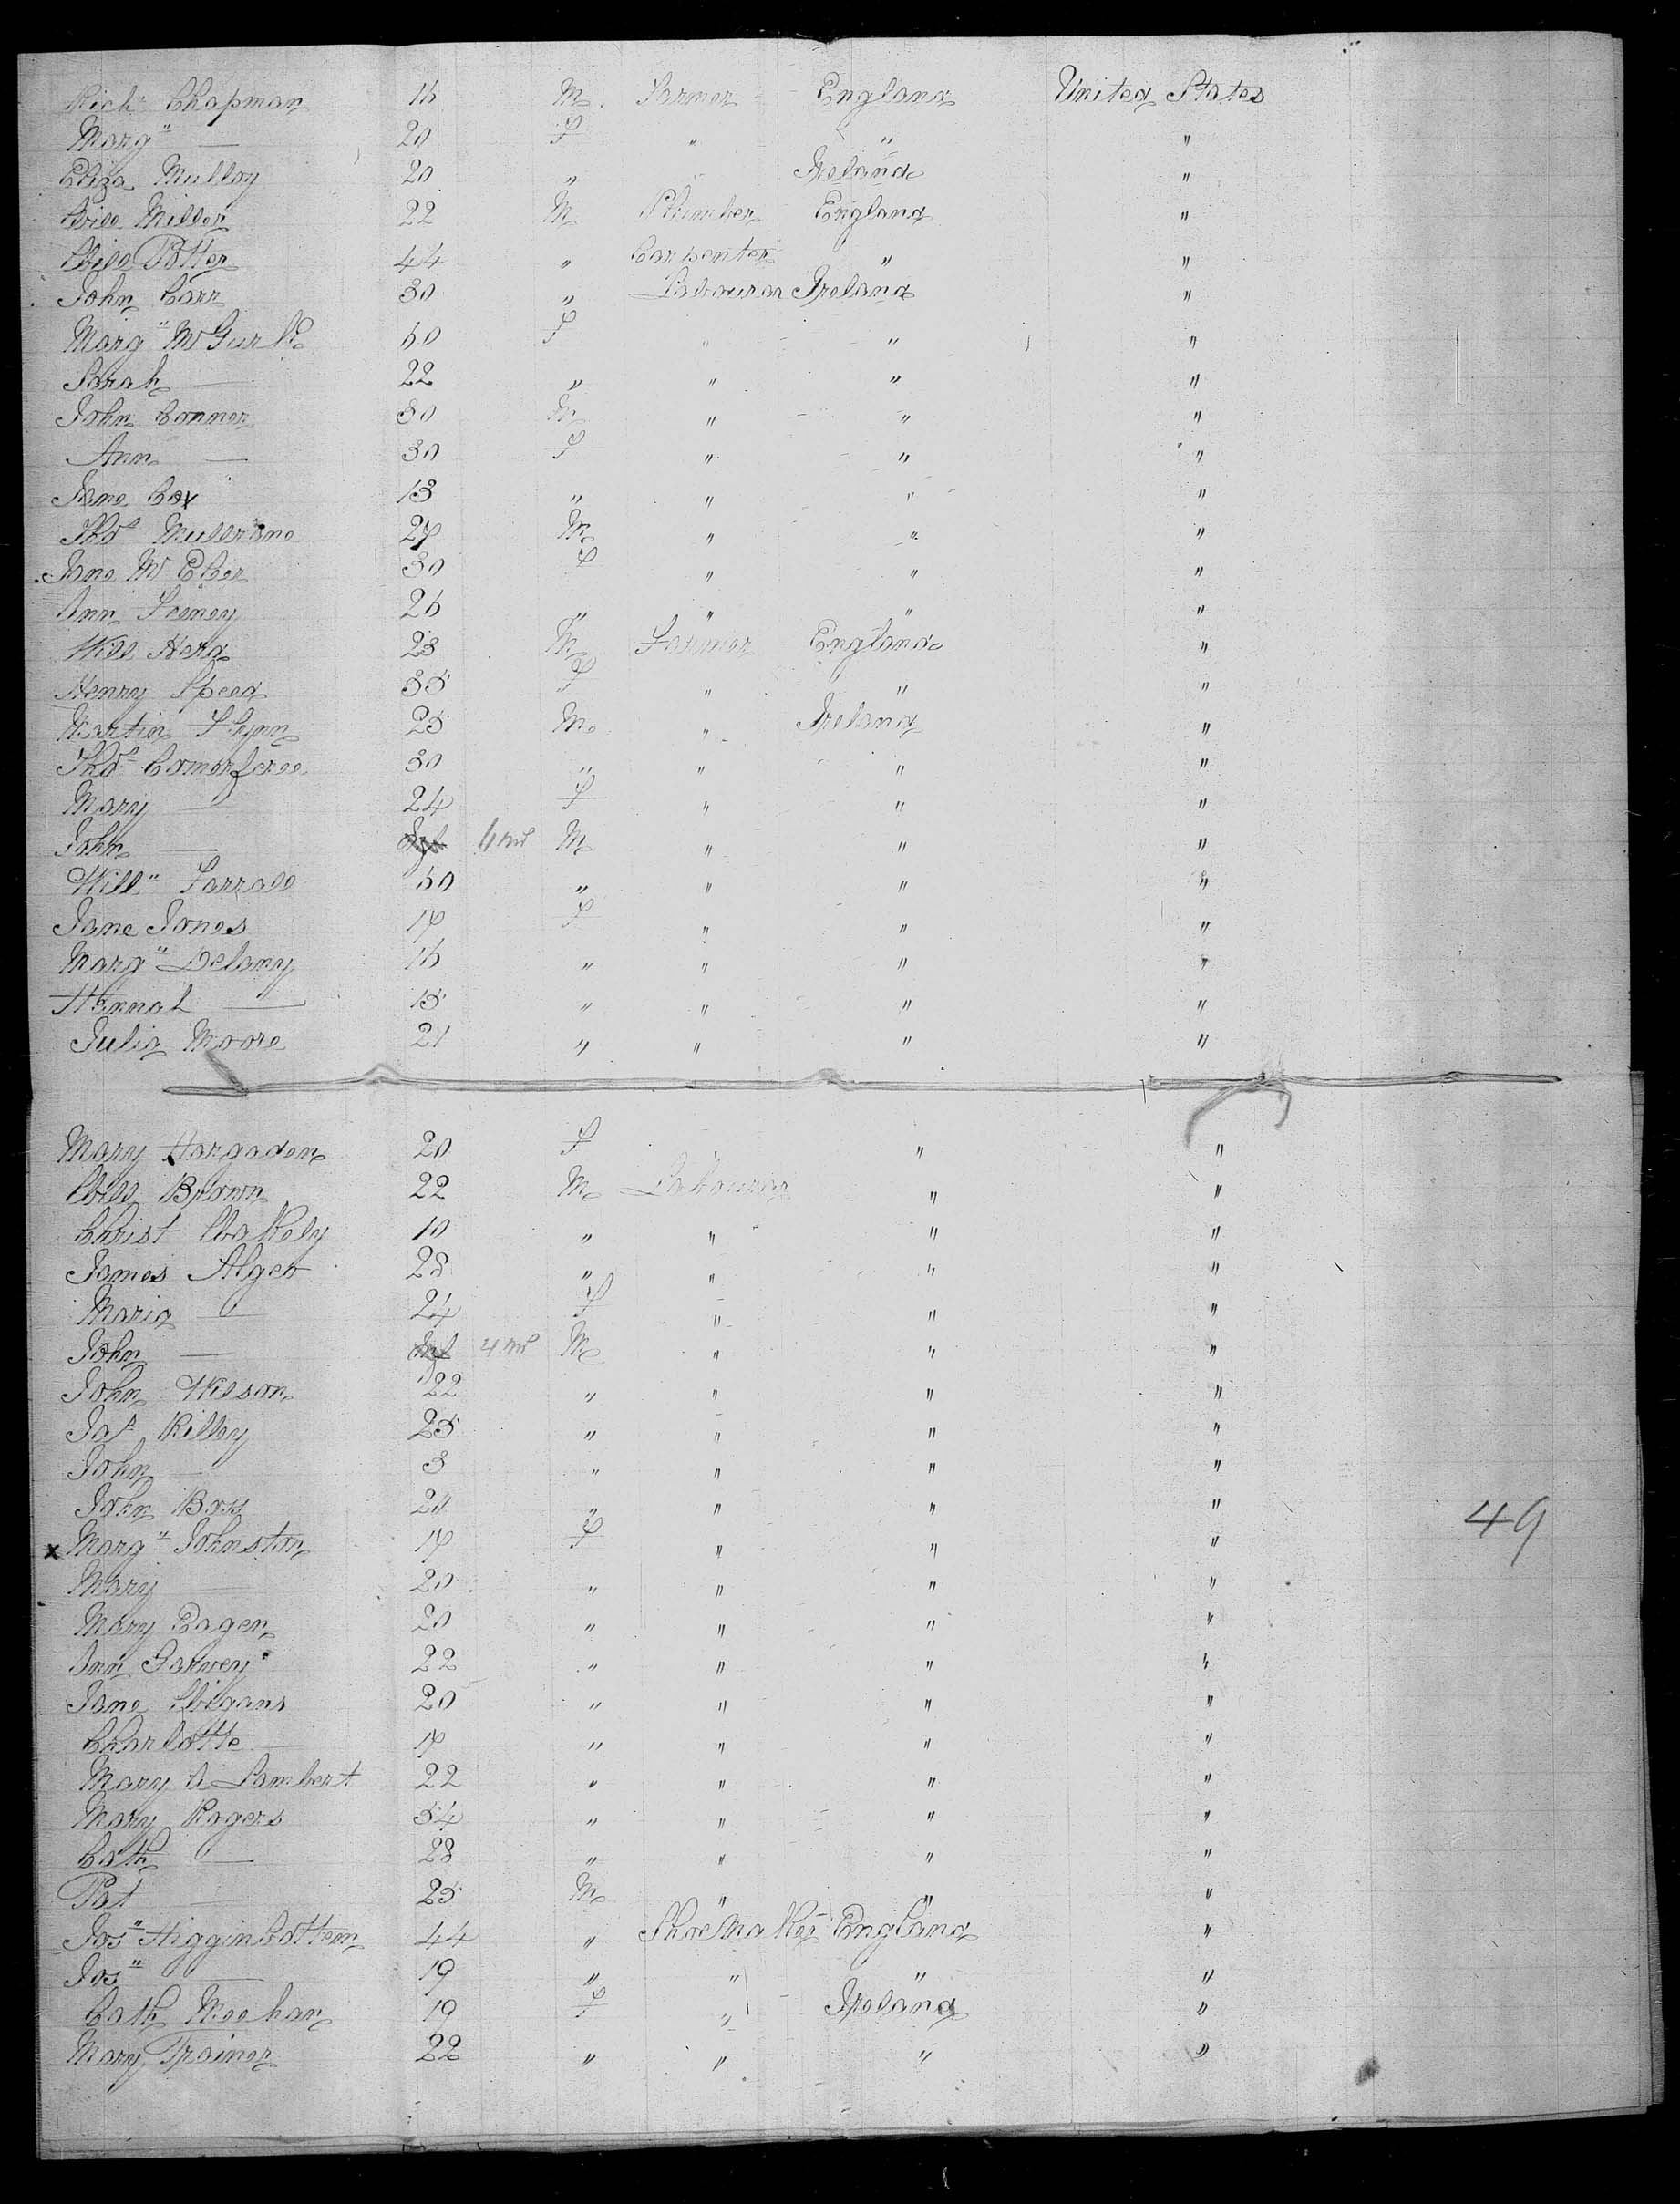 Rich" Chapman 16 M Farmer England United States
Marg" — 20 F " " "
Eliza Mulloy 20 " Ireland "
Will Miller 22 M Plumber England "
Will Potter 44 " Carpenter " "
John Carr 30 " Labourer Ireland "
Marg" McGurk 60 F " " "
Sarah — 22 " " " "
John Connor 30 M " " "
Ann — 30 F " " "
Jane Cox 13 " " " "
Thos 27 M " " "
Jane Mc 30 F " " "
Ann Feeney 26 " " " "
Will Herd 23 M Farmer England "
Henry Speed 35 F " " "
Martin Flynn 25 M " Ireland "
Thos 30 " " " "
Mary — 24 F " " "
John — Inf M " " "
Will" Farrall 60 " " " "
Jane Jones 17 F " " "
Marg" Delany 16 " " " "
Hannah — 15 " " " "
Julia Moore 21 " " " "
Mary Hargaden 20 F " " "
Will Brown 22 M Labourer " "
Christ Wakely 10 " " " "
James Algeo 28 " " " "
Maria — 24 F " " "
John — Inf 4 ms M " " "
John Wilson 22 " " " "
Jas Rilley 25 " " " "
John — 3 " " " "
John Boss 20 " " " "
x Marg" Johnston 17 F " " " 49
Mary — 20 " " " "
Mary Eagen 20 " " " "
Ann Garvey 22 " " " "
Jane Wigans 20 " " " "
Charlotte — 17 " " " "
Mary A Lambert 22 " " " "
Mary Rogers 54 " " " "
Cath — 28 " " " "
Pat — 25 M " " "
Jos" Higginbottom 44 " Shoemaker England "
Jos" — 19 " " " "
Cath Meehan 19 F " Ireland "
Mary Trainer 22 " " " "